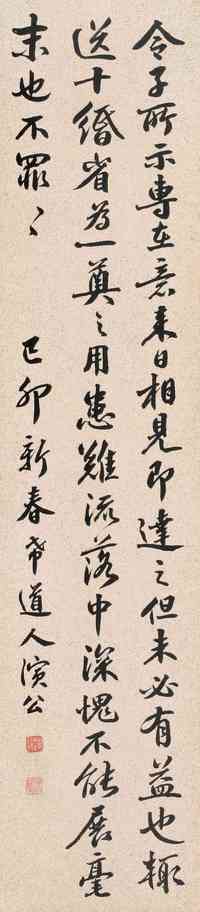 令子所示專在意来日相見即達之但未必有益也輒
送十緡省為一奠之用患難流落中深愧不能展毫
末也不罪〻
己卯新春希道人演公